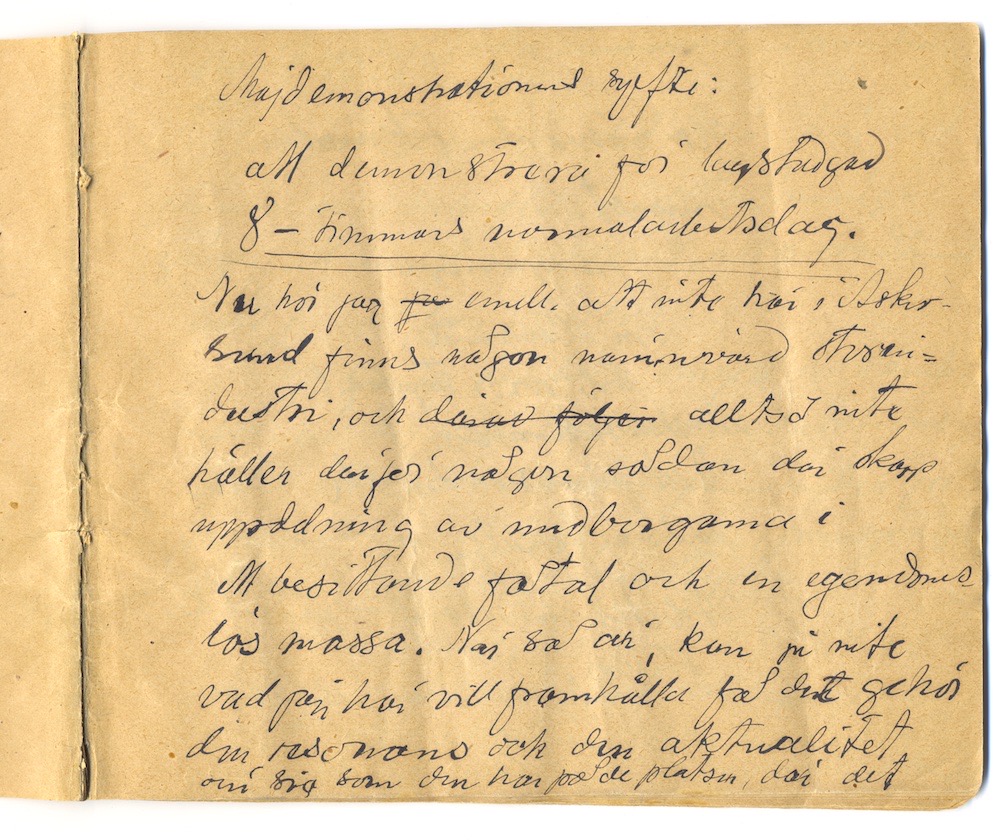 Majdemonstrationens syfte:
att demonstrera för lagstadgad
8 – timmars normalarbetsdag.
Nu hör jag ja emell. att inte här i Asker-
sund finns någon nämnvärd storin-
dustri, och därav följer alltså inte
håller därför någon sådan där skarp
uppdelning av medborgarna i
ett besittande fåtal och en egendoms-
lös massa. När så är, kan ju inte
vad jag här vill framhålla få det gehör
den resonans och den aktualitet
om sig som den har på de platser, där det